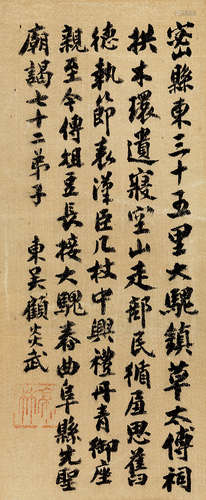 密縣東三十五里大騩鎮草太傅祠
拱木環遺寢空山走部民循良思舊
德執節表漢臣几杖中興禮丹青御座
親至今傳俎豆長接大騩春曲阜縣先聖
廟謁七十二弟子
東吳顧炎武